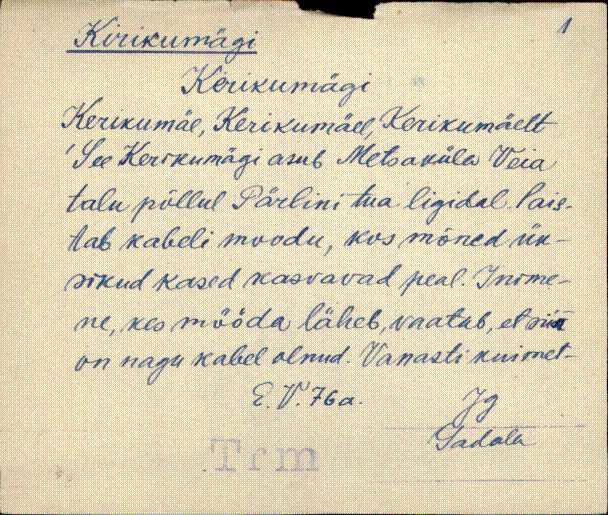 Kirikumägi
1
Kerikumägi
Kerikumäe, Kerikumäel, Kerikumäelt
See Kerikumägi asub Metsaküla Veia
talu põllul Pärlini tua ligidal. Pais-
tab kabeli moodu, kos mõned ük-
sikud kased kasvavad peal. Inime-
ne, kes mööda läheb, vaatab, et siin
on nagu kabel olnud. Vanasti nuimet-
E. V. 76a.
Jg
Sadala
Trm